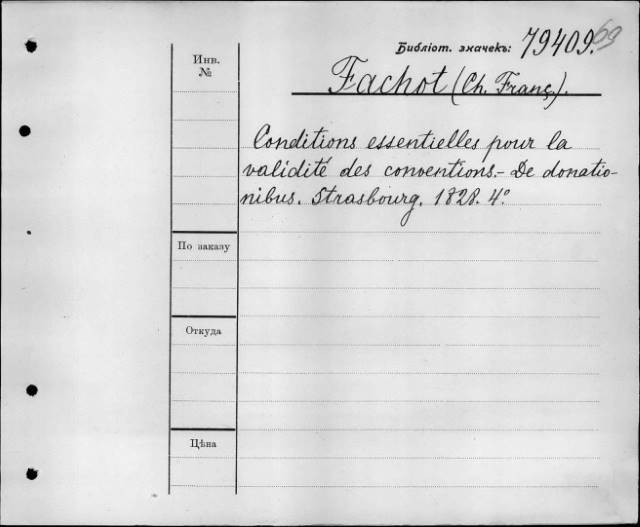 Библіот. значекъ: 79409.
69
Инв.
№
Fachot (Ch. Franç).
Conditions essentielles pour la
validité des conventions.- De donatio-
nibus. Strasbourg. 1828. 4º
По заказу
Откуда
Цѣна